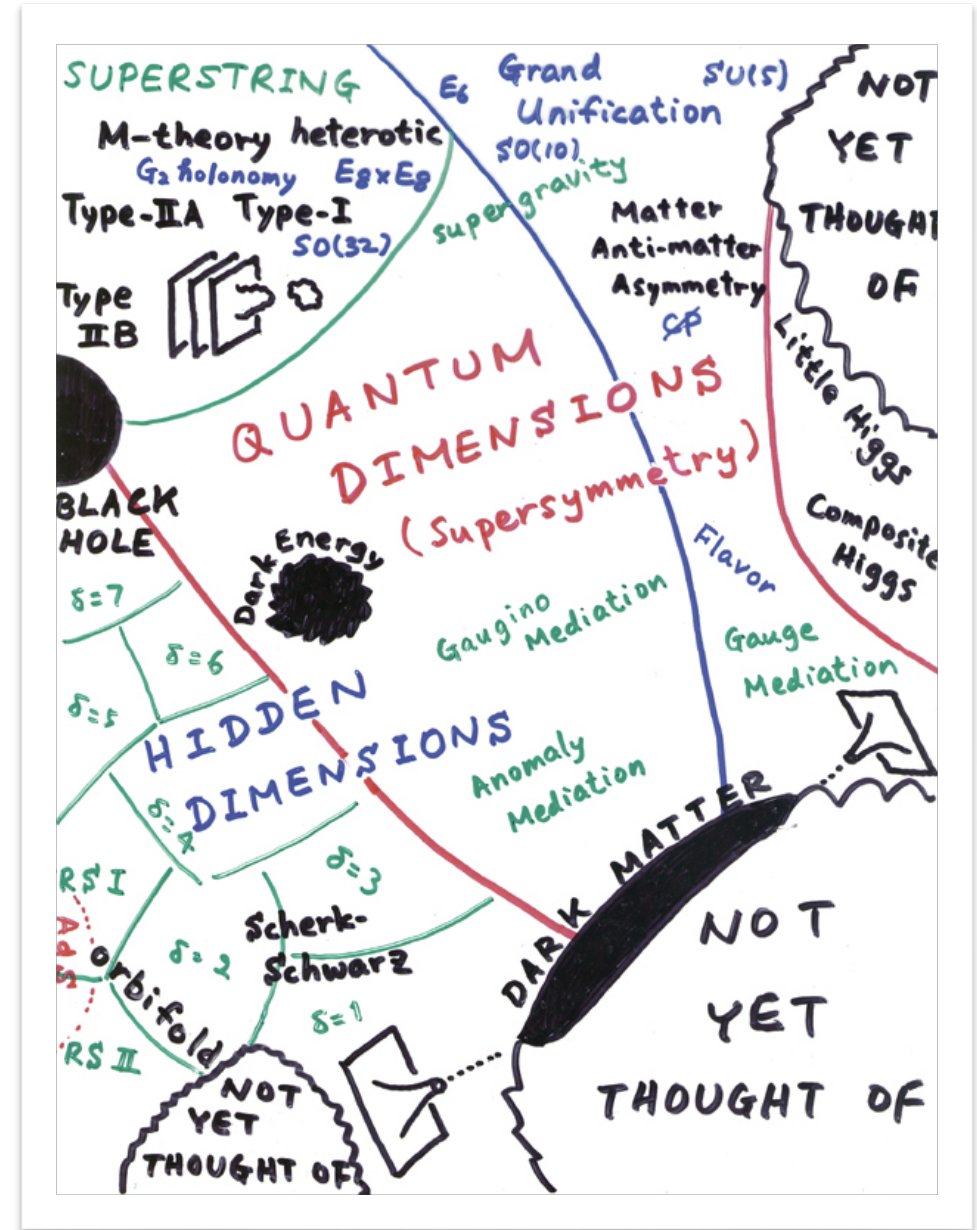 SUPERSTRING
M-theory heterotic
G₂ holonomy E8×E8
Type-IIA Type-I
SO(32)
Type
IIB
E₆
Grand
Unification
SU(5)
SO(10)
supergravity
Matter
Anti-matter
Asymmetry
CP
NOT
YET
THOUGHT
OF
Little Higgs
Composite
Higgs
QUANTUM
DIMENSIONS
(Supersymmetry)
BLACK
HOLE
Dark Energy
Flavor
Gaugino
Mediation
Gauge
Mediation
Anomaly
Mediation
δ=7
δ=6
δ=5
HIDDEN
DIMENSIONS
δ=4
δ=3
RS I
AdS
orbifold
RS II
δ=2
Scherk-
Schwarz
δ=1
DARK MATTER
NOT
YET
THOUGHT OF
NOT
YET
THOUGHT OF